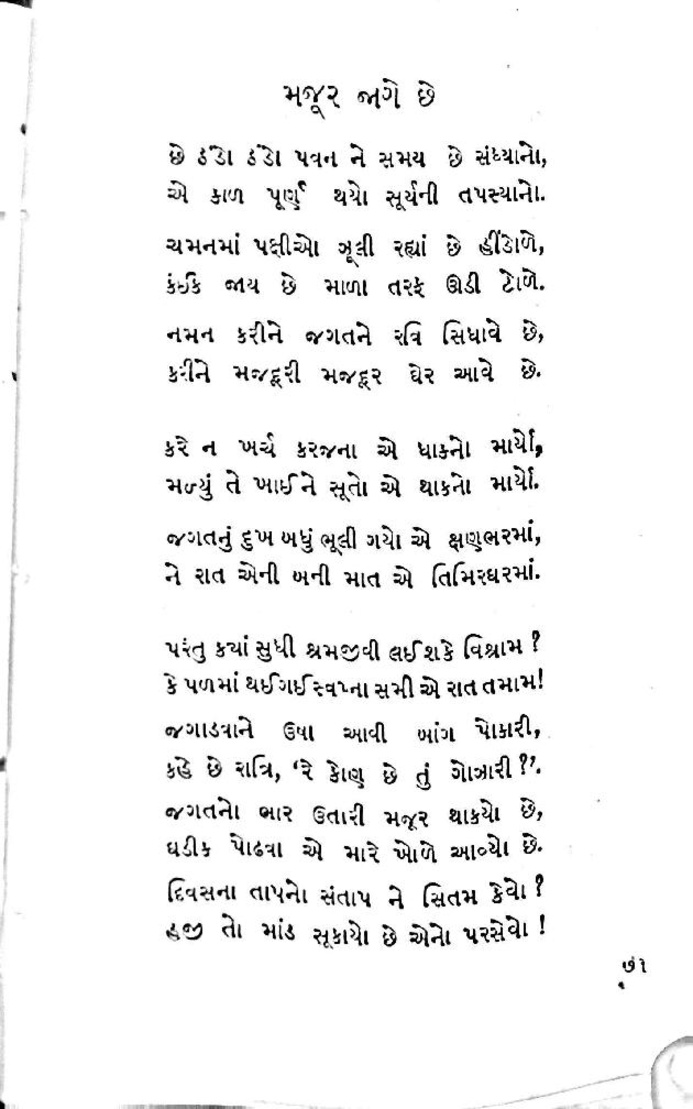 મજૂર જાગે છે
છે ઠંડો ઠંડો પવન ને સમય છે સંધ્યાનો,
એ કાળ પૂર્ણ થયો સૂર્યની તપસ્યાનો.
ચમનમાં પક્ષીઓ ઝૂલી રહ્યાં છે હીંડોળે,
કંઈક જાય છે માળા તરફ ઊડી ટોળે.
નમન કરીને જગતને રવિ સિધાવે છે,
કરીને મજદૂરી મજદૂર ઘેર આવે છે.
કરે ન ખર્ચ કરજના એ ધાકનો માર્યો,
મળ્યું તે ખાઈને સૂતો એ થાકનો માર્યો.
જગતનું દુખ બધું ભૂલી ગયો એ ક્ષણભરમાં,
ને રાત એની બની માત એ તિમિરઘરમાં.
પરંતુ કયાં સુધી શ્રમજીવી લઈ શકે વિશ્રામ ?
કે પળમાં થઈ ગઈ સ્વપ્ના સમી એ રાત તમામ!
જગાડવાને ઉષા આવી બાંગ પોકારી,
કહે છે રાત્રિ, ‘રે કોણ છે તું ગોઝારી ?’.
જગતનો ભાર ઉતારી મજૂર થાકયો છે,
ઘડીક પોઢવા એ મારે ખોળે આવ્યો છે.
દિવસના તાપનો સંતાપ ને સિતમ કેવો ?
હજી તો માંડ સૂકાયો છે એનો પરસેવો !
૭૧